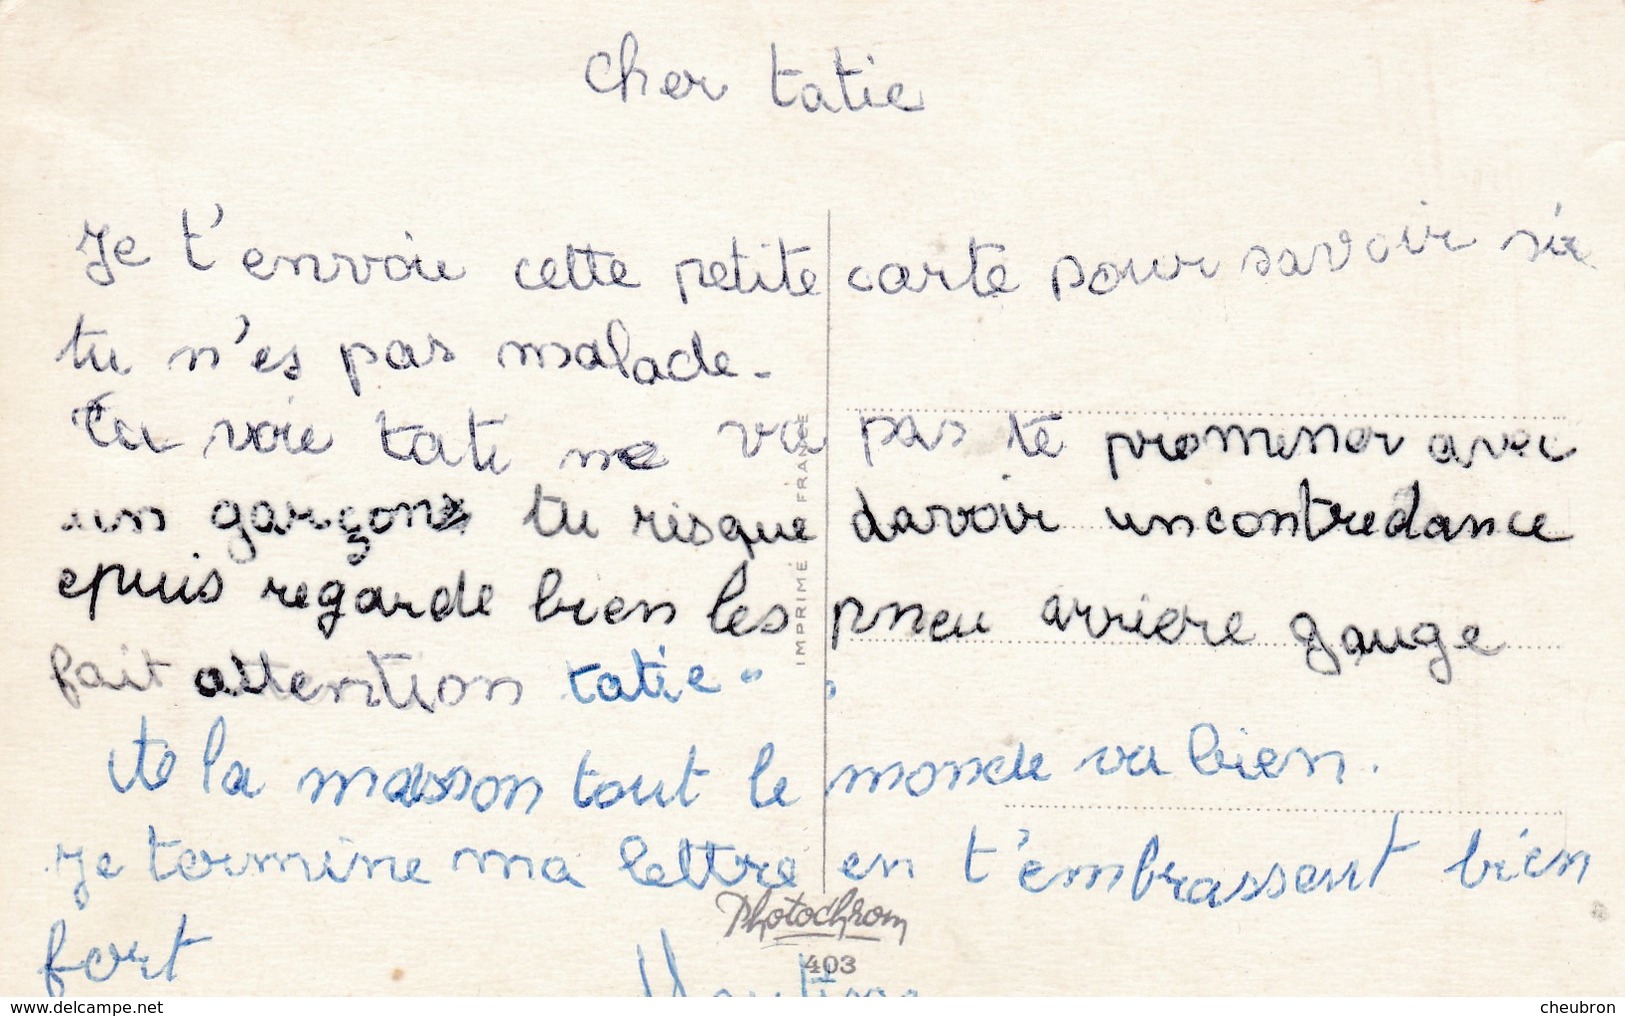 cher tatie
Je t'envoie cette petite carte pour savoir si
tu n'es pas malade.
Tu voie tati ne va pas te promener avec
un garçon tu risque davoir uncontredance
epuis regarde bien les pneu arriere gauge
fait attention tatie
la maison tout le monde va bien.
Je termine ma lettre en t'embrassent bien
fort
IMPRIMÉ FRANCE
Photochrom
403
https://www.delcampe.net
cheubron